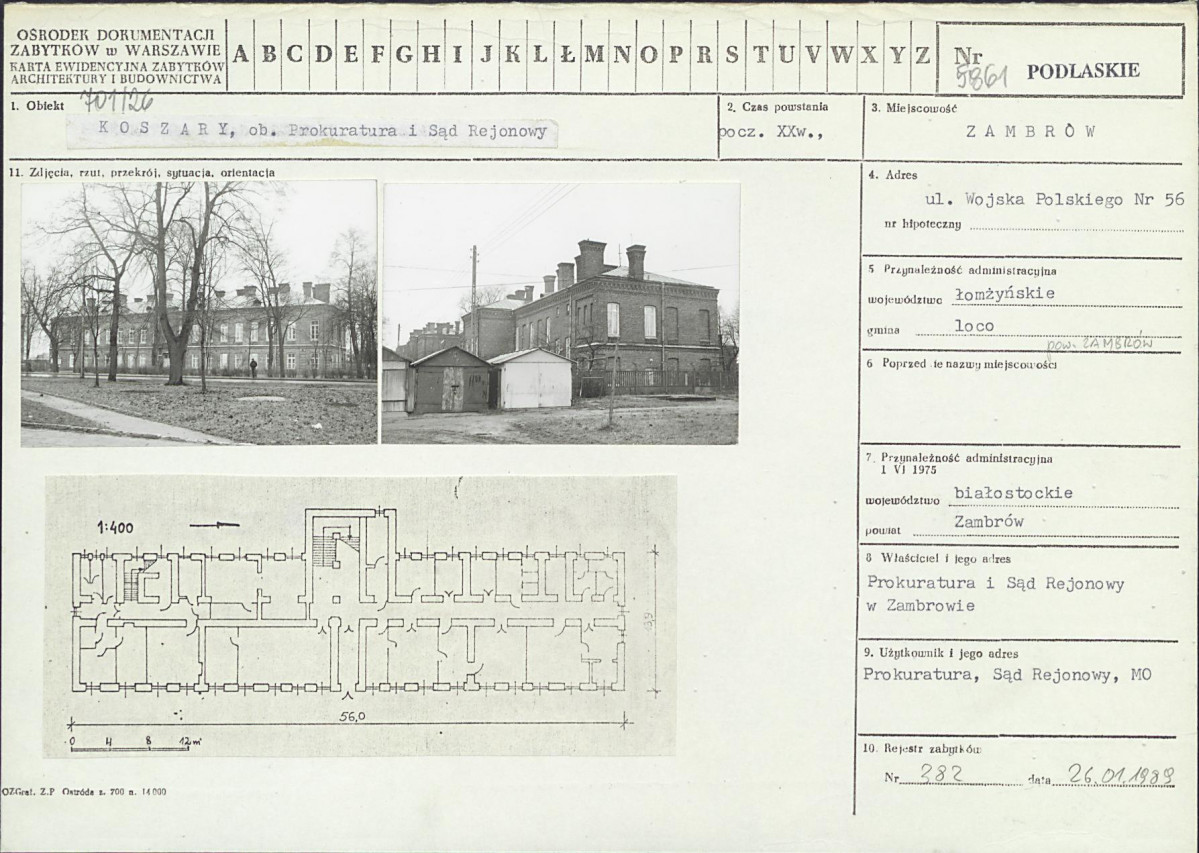 OŚRODEK DOKUMENTACJI
ZABYTKÓW w WARSZAWIE
KARTA EWIDENCYJNA ZABYTKÓW
ARCHITEKTURY I BUDOWNICTWA
A B C D E F G H I J K L Ł M N O P R S T U V W X Y Z
Nr 5861 PODLASKIE
1. Obiekt 701/26
K O S Z A R Y, ob. Prokuratura i Sąd Rejonowy
2. Czas powstania
pocz. XXw.,
3. Miejscowość
Z A M B R Ó W
11. Zdjęcia, rzut, przekrój, sytuacja, orientacja
4. Adres
ul. Wojska Polskiego Nr 56
nr hipoteczny
5 Przynależność administracyjna
województwo łomżyńskie
gmina loco
pow. ZAMBRÓW
6 Poprzednie nazwy miejscowości
7. Przynależność administracyjna
1 VI 1975
województwo białostockie
powiat Zambrów
8 Właściciel i jego adres
Prokuratura i Sąd Rejonowy
w Zambrowie
9. Użytkownik i jego adres
Prokuratura, Sąd Rejonowy, MO
10. Rejestr zabytków
Nr 382 data 26.01.1989
1:400
13,9
56,0
0 4 8 12m
OZGraf. Z.P Ostróda z. 700 n. 14 000